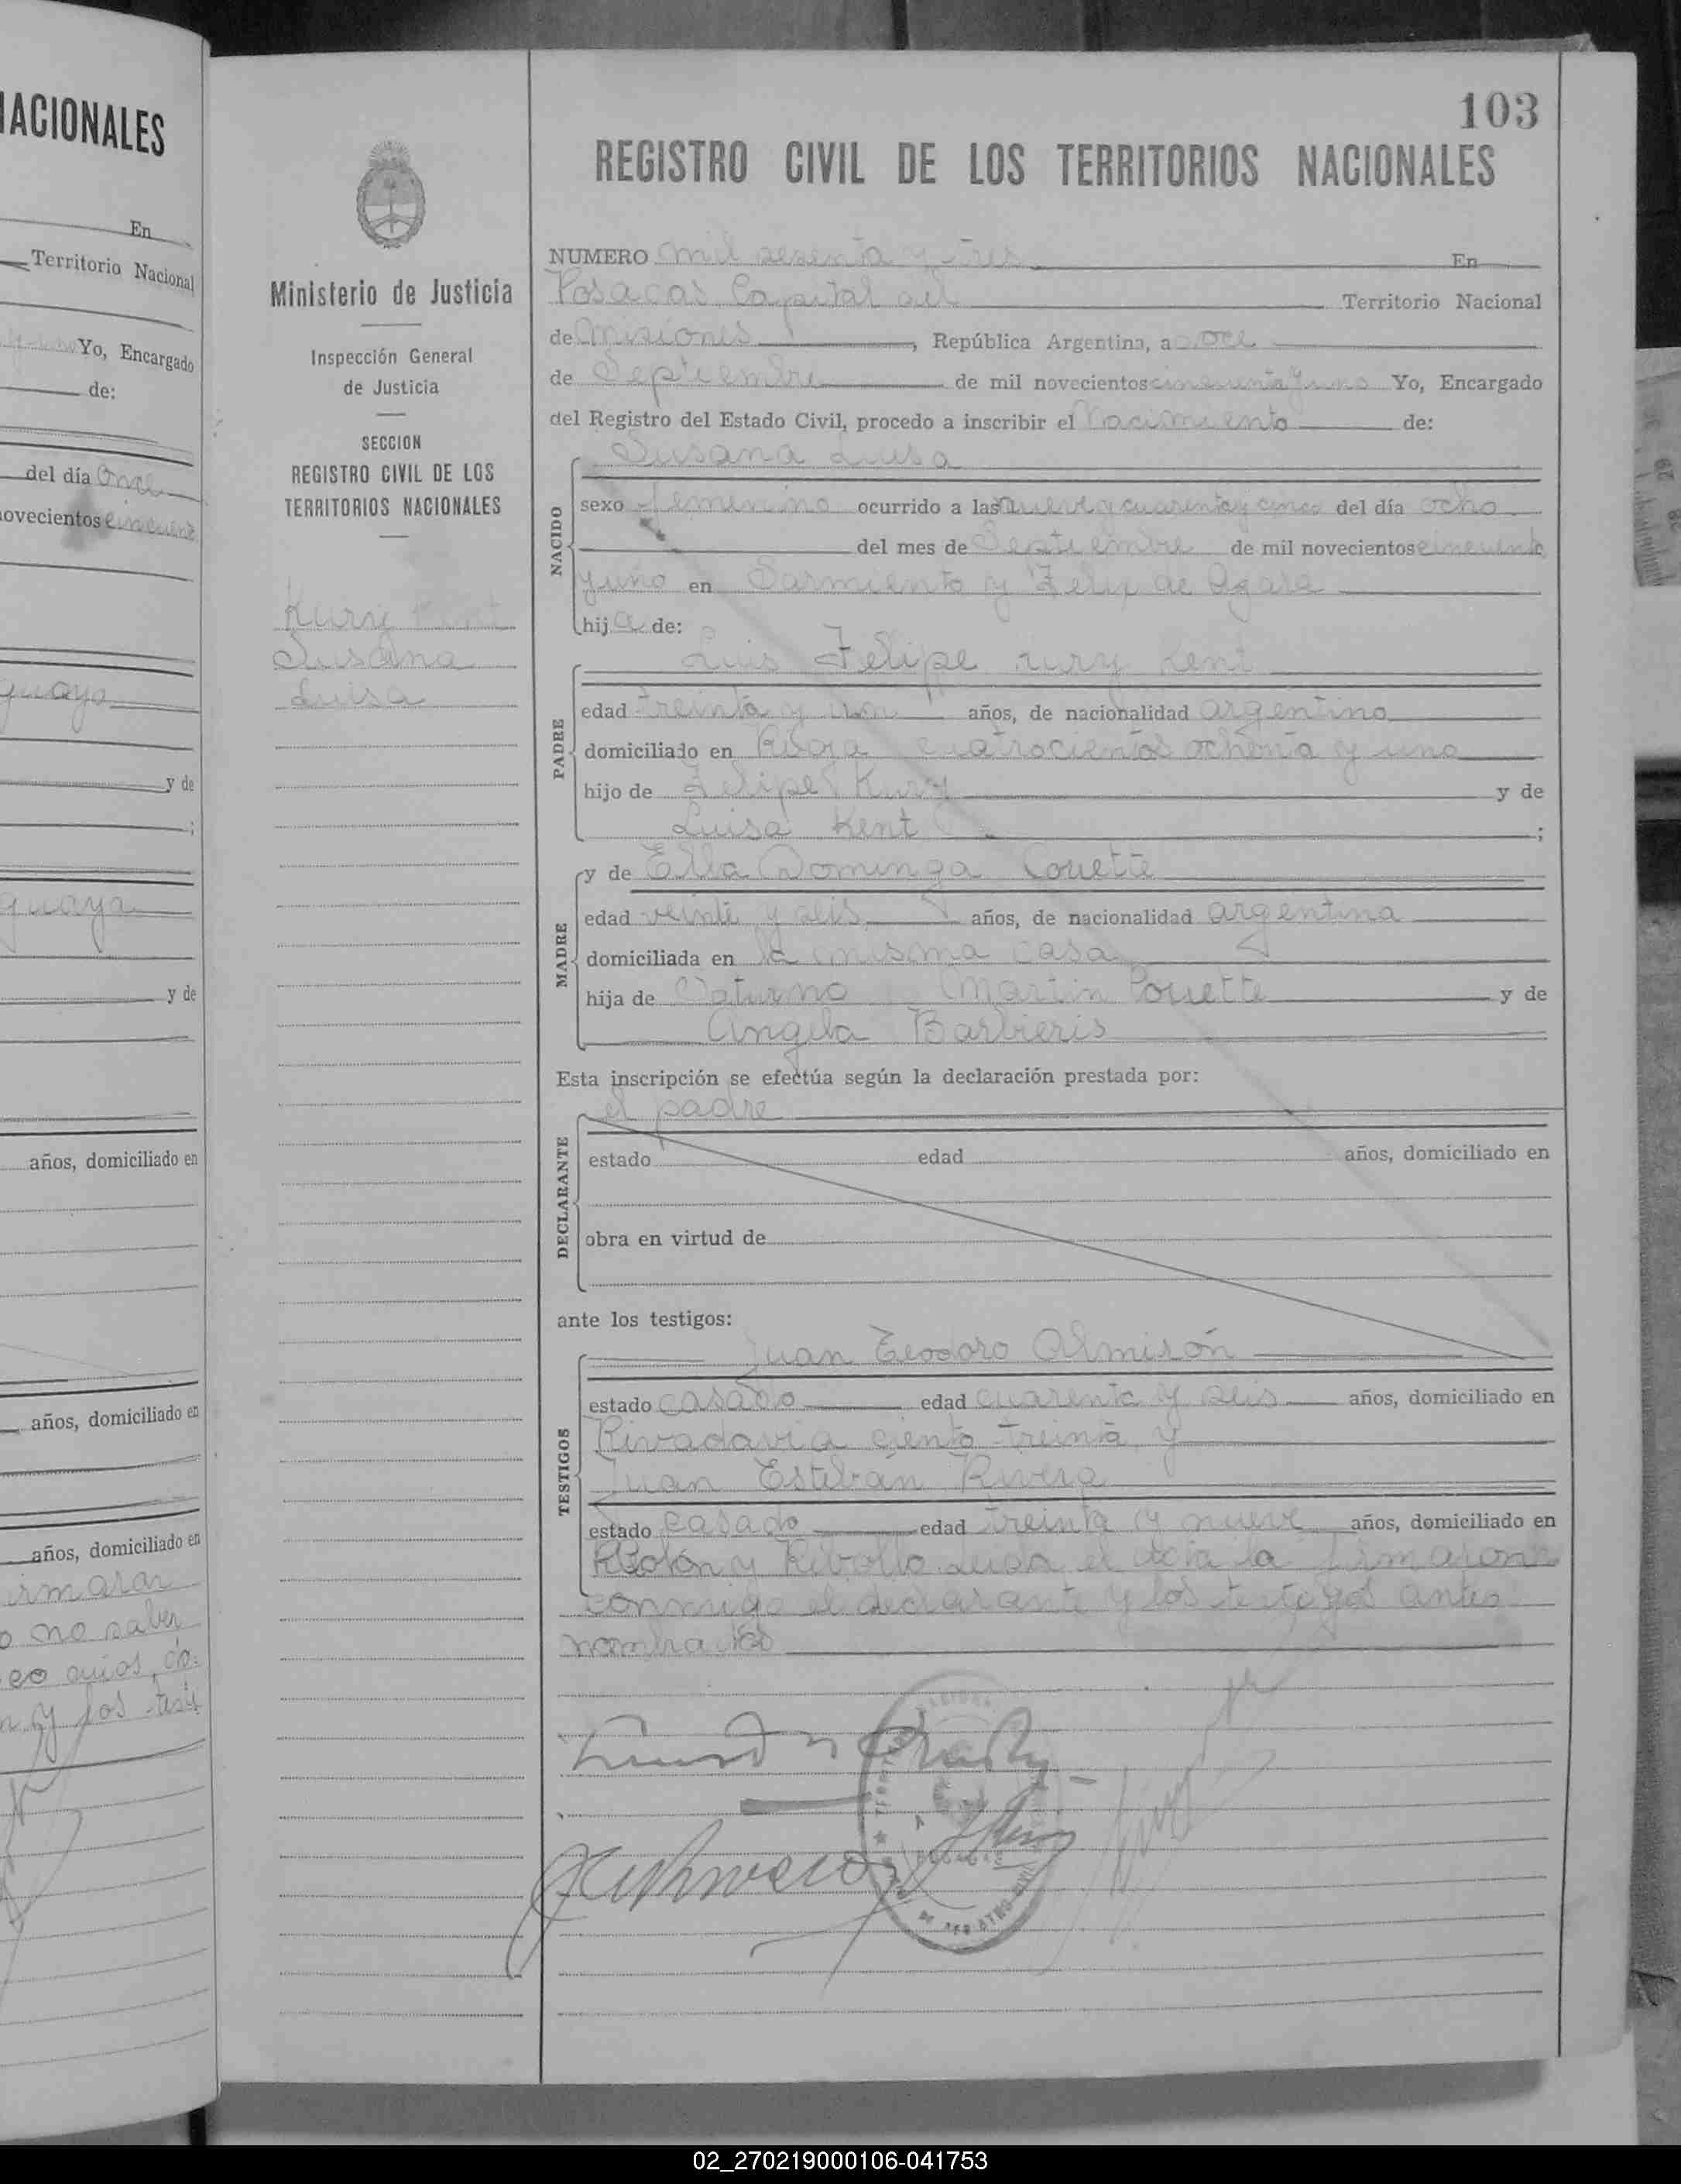 NACIONALES
En
Territorio Nacional
y uno Yo, Encargado
de:
del día Once
novecientos cincuent
guaya
y de
;
guaya
y de
años, domiciliado en
años, domiciliado en
años, domiciliado en
firmaran
no saber
y los testi
Ministerio de Justicia
Inspección General
de Justicia
SECCION
REGISTRO CIVIL DE LOS
TERRITORIOS NACIONALES
Kury Kent
Susana
Luisa
103
REGISTRO CIVIL DE LOS TERRITORIOS NACIONALES
NUMERO mil sesenta y tres En
Posadas Capital del Territorio Nacional
de Misiones, República Argentina, a doce
de Septiembre de mil novecientos cincuenta y uno Yo, Encargado
del Registro del Estado Civil, procedo a inscribir el Nacimiento de:
Susana Luisa
NACIDO
sexo femenino ocurrido a las nueve y cuarenta y cinco del día ocho
del mes de Septiembre de mil novecientos cincuenta
y uno en Sarmiento y Felix de Azara
hija de:
Luis Felipe Kury Kent
PADRE
edad treinta y un años, de nacionalidad argentino
domiciliado en Rioja cuatrocientos ochenta y uno
hijo de Felipe Kury y de
Luisa Kent ;
y de Elba Dominga Couette
MADRE
edad veinte y seis años, de nacionalidad argentina
domiciliada en la misma casa
hija de Saturno Martin Couette y de
Angela Barbieris
Esta inscripción se efectúa según la declaración prestada por:
el padre
DECLARANTE
estado edad años, domiciliado en
obra en virtud de
ante los testigos:
Juan Teodoro Almirón
TESTIGOS
estado casado edad cuarenta y seis años, domiciliado en
Rivadavia ciento treinta y
Juan Esteban Rivero
estado casado edad treinta y nueve años, domiciliado en
Colón y Leida el acta la firmaron
conmigo el declarante y los testigos antes
nombrados
02_270219000106-041753